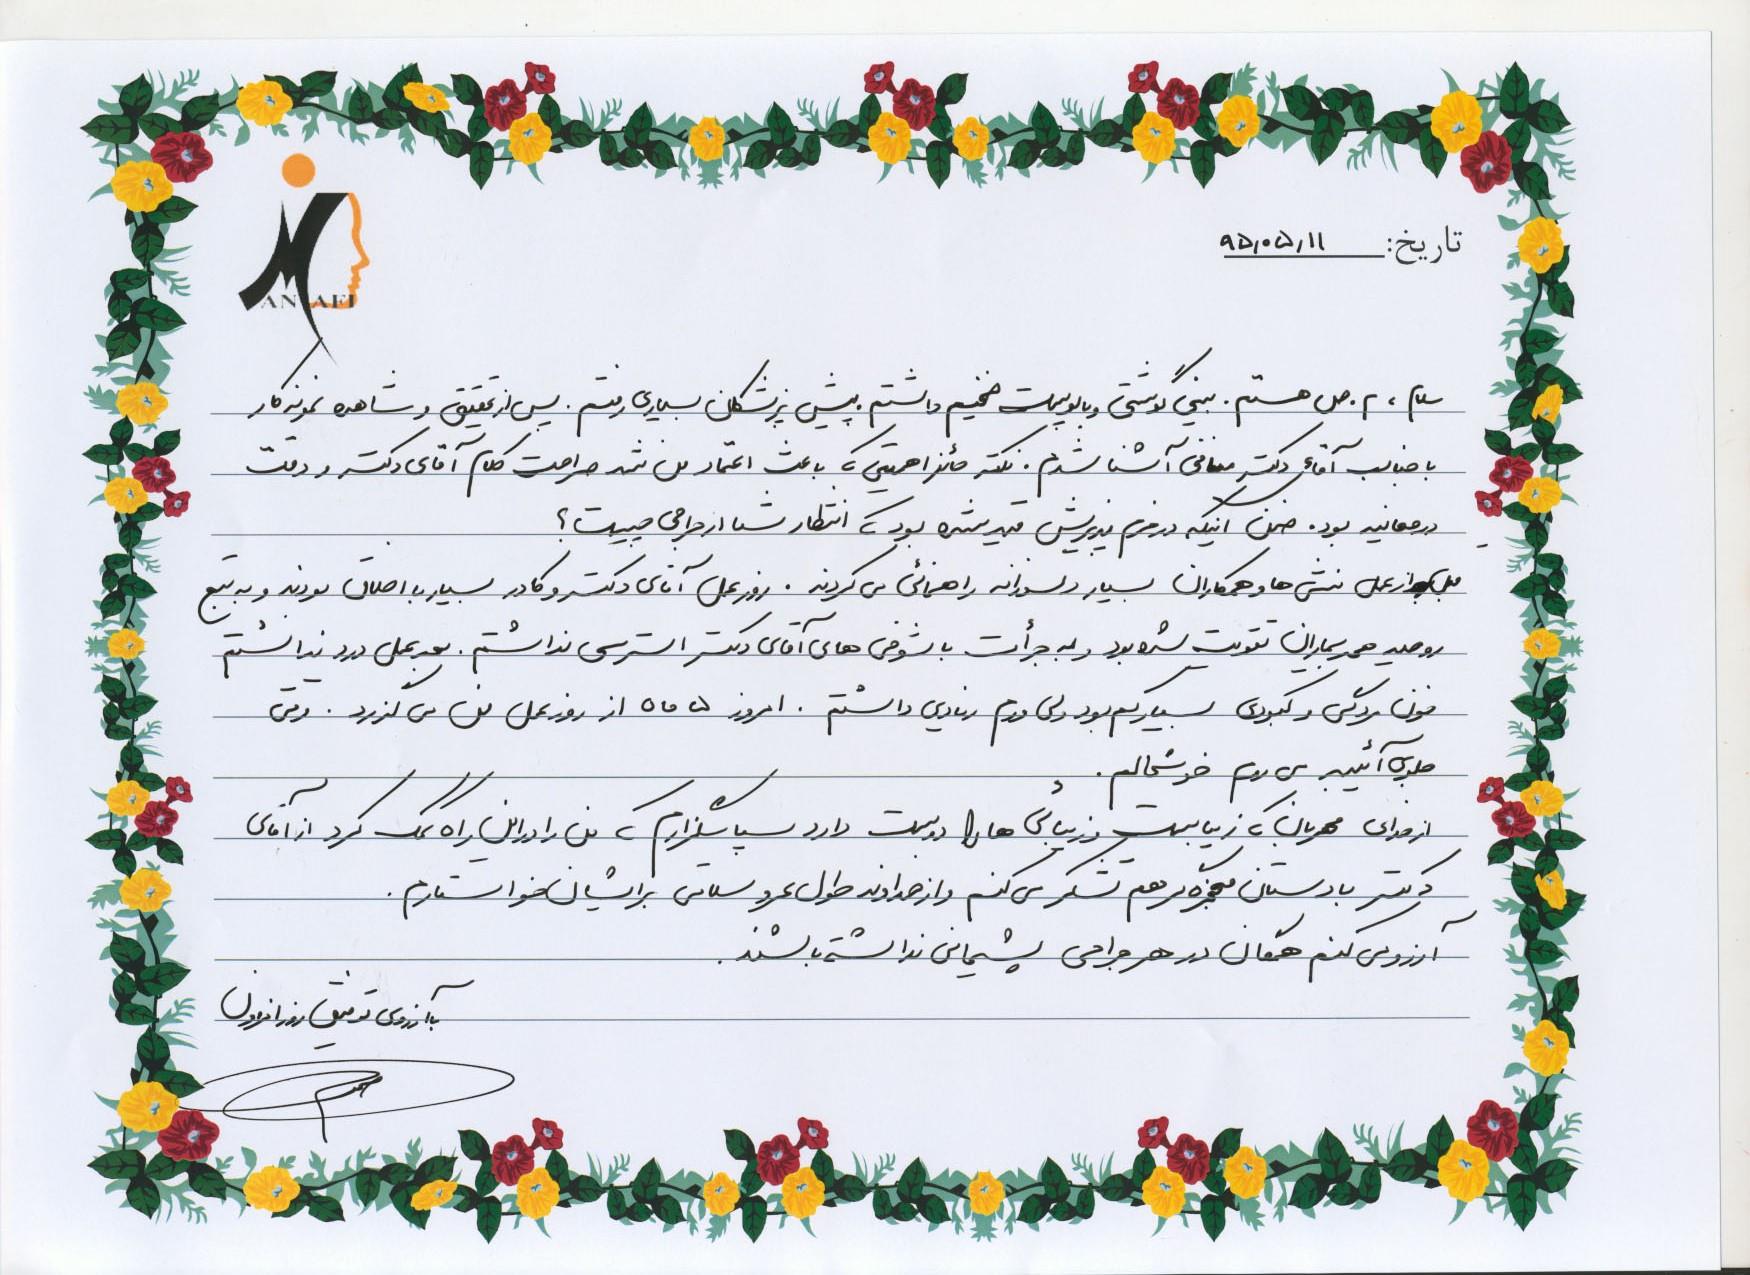 MANAFI
تاریخ: ۹۵٫۰۵٫۱۱
سلام، م.ص هستم. بینی گوشتی و با پوست ضخیم داشتم. پیش پزشکان بسیاری رفتم. پس از تحقیق و مشاهده نمونه کار
با جناب آقای دکتر منافی آشنا شدم. نکته حائز اهمیتی که باعث اعتماد من شد صراحت کلام آقای دکتر و دقت
در معاینه بود. ضمن اینکه در فرم پذیرش قید شده بود که انتظار شما از جراحی چیست؟
قبل از عمل منشی ها و همکاران بسیار دلسوزانه راهنمائی می کردند. روز عمل آقای دکتر و کادر بسیار با اخلاق بودند و به تبع
روحیه همه بیماران تقویت شده بود و به جرأت با شوخی های آقای دکتر استرسی نداشتم. بعد عمل درد نداشتم
خون مردگی و کبودی بسیار کم بود ولی ورم زیادی داشتم. امروز ۵ ماه از روز عمل من می گذرد. وقتی
جلوی آئینه می روم خوشحالم.
از خدای مهربان که زیباست و زیبائی ها را دوست دارد سپاسگزارم که من را در این راه کمک کرد از آقای
دکتر با دستان معجزه گر هم تشکر می کنم و از خداوند طول عمر و سلامتی برایشان خواستارم.
آرزو می کنم همگان در هر جراحی پشیمانی نداشته باشند.
با آرزوی توفیق روز افزون